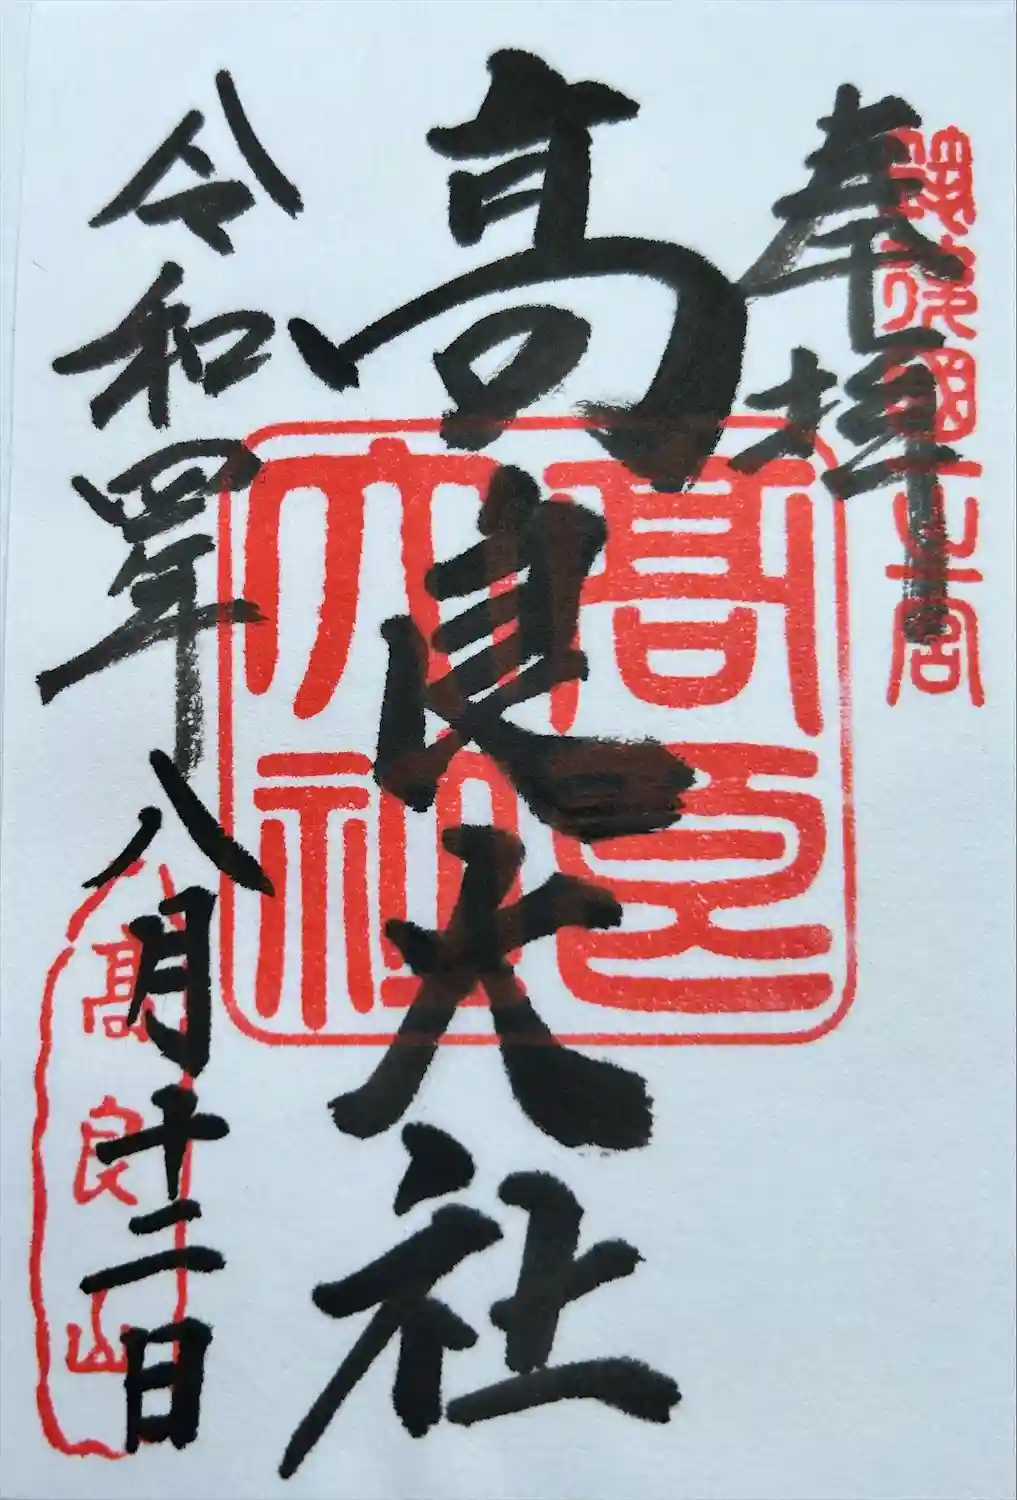 奉拝
筑後國一之宮
高良大社
高良大社
令和四年八月十二日
高良山